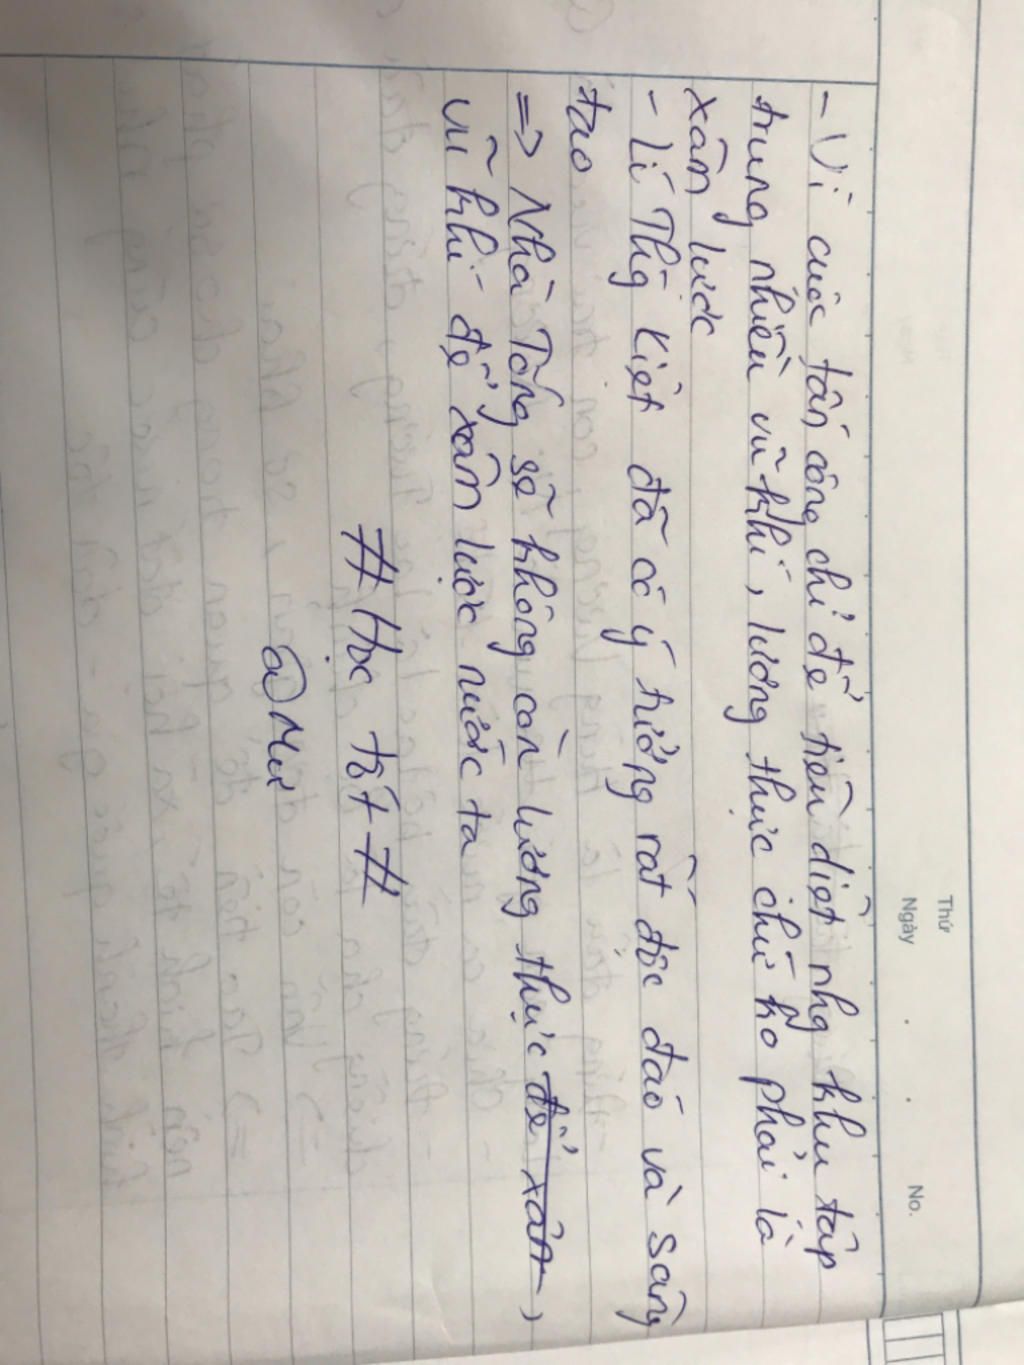 Thứ
Ngày . .
No.
- Vì cuộc tấn công chỉ để tiêu diệt nhg khu tập
trung nhiều vũ khí, lương thực chứ ko phải là
xâm lược
- Lí Thg Kiệt đã có ý tưởng rất độc đáo và sáng
tạo
=> Nhà Tống sẽ không còn lương thực để xâm,
vũ khí để xâm lược nước ta
# Học tốt #